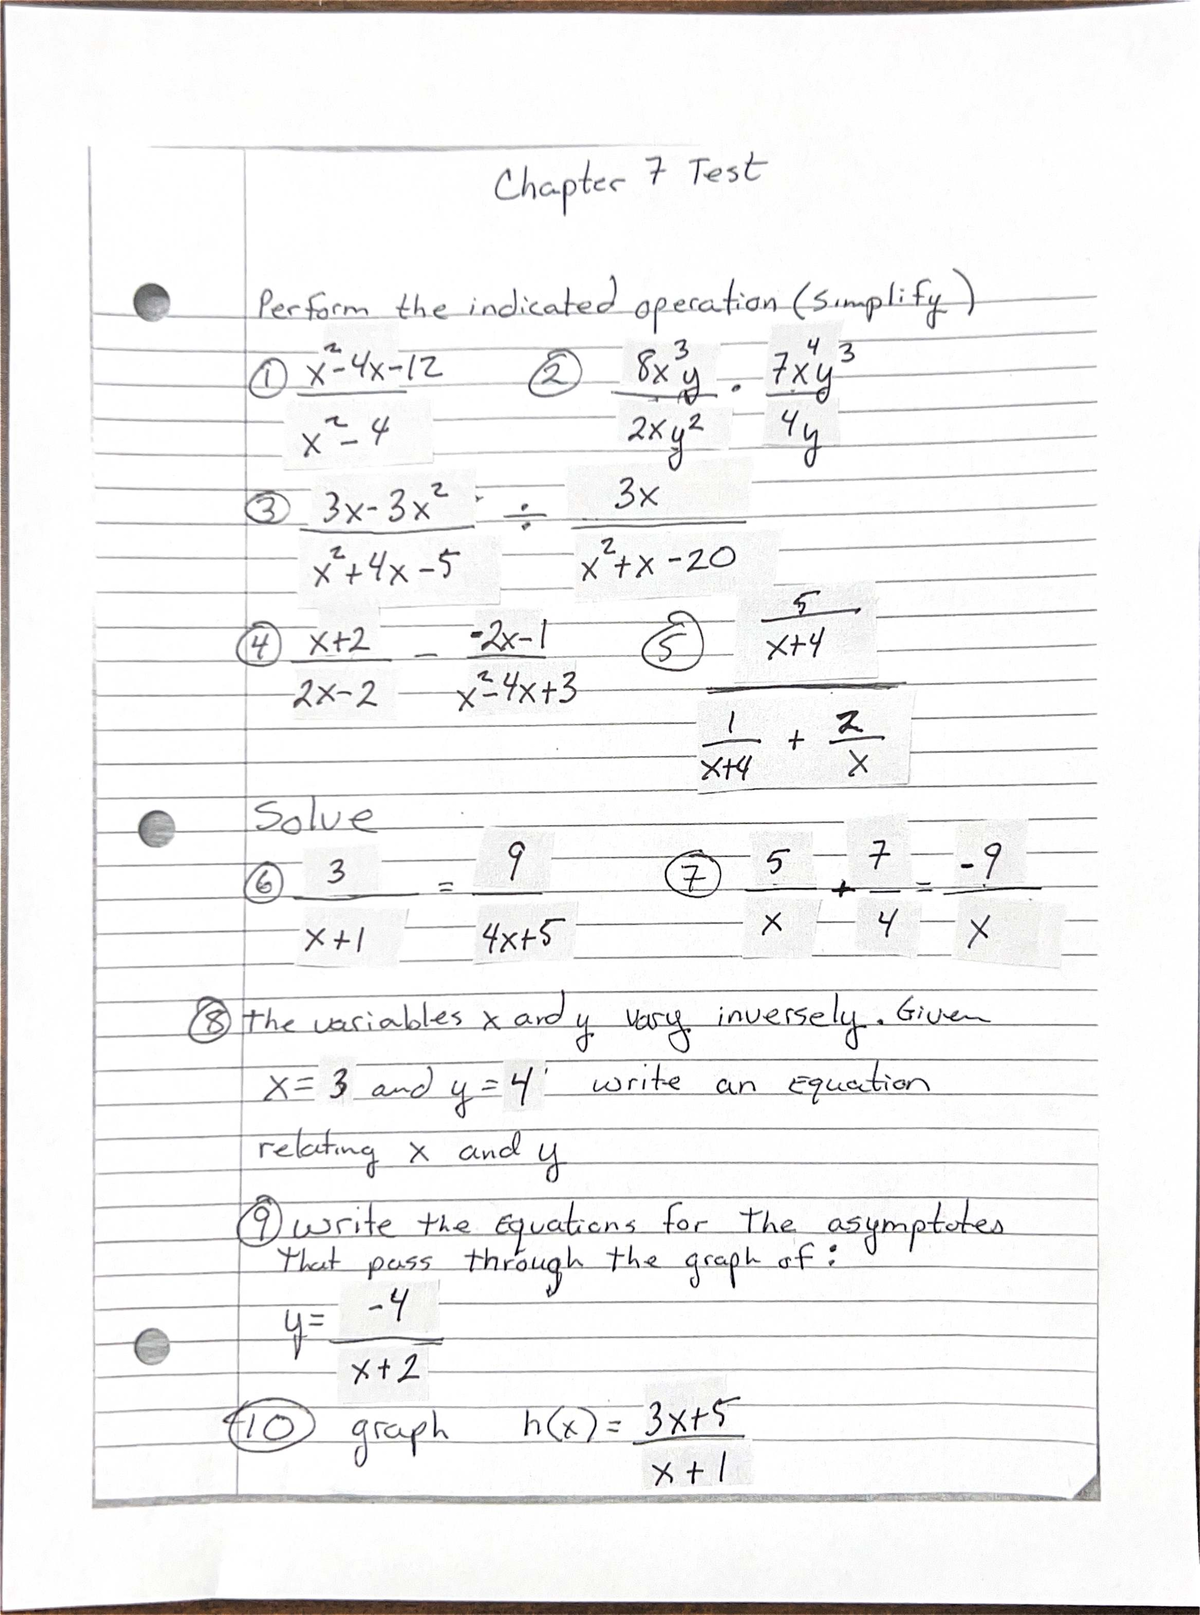 Chapter 7 Test
Perform the indicated operation (Simplify)
① x²-4x-12 / x²-4 ② 8x³y / 2xy² · 7x⁴y³ / 4y
③ 3x-3x² / x²+4x-5 ÷ 3x / x²+x-20
④ x+2 / 2x-2 - -2x-1 / x²-4x+3 ⑤ (5 / x+4) / (1 / x+4 + 2 / x)
Solve
⑥ 3 / x+1 = 9 / 4x+5 ⑦ 5 / x + 7 / 4 = -9 / x
⑧ the variables x and y vary inversely. Given
x=3 and y=4 write an Equation
relating x and y
⑨ write the Equations for the asymptotes
that pass through the graph of:
y= -4 / x+2
⑩ graph h(x)= 3x+5 / x+1